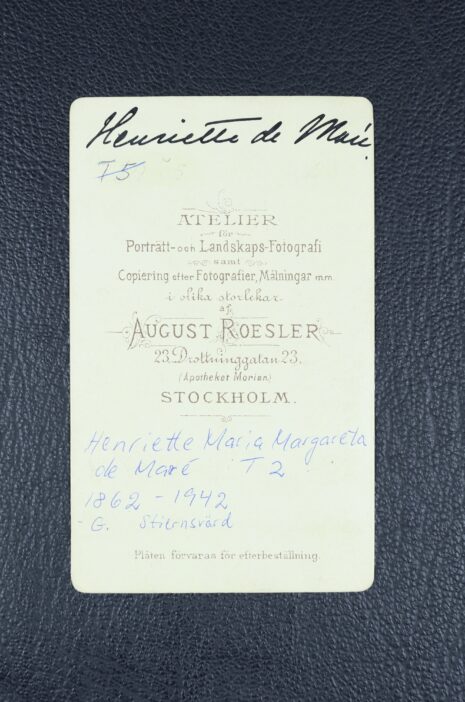 Henriette de Maré.
T5
ATELIER
för
Porträtt- och Landskaps-Fotografi
samt
Copiering efter Fotografier, Målningar m.m.
i olika storlekar.
af
AUGUST ROESLER
23. Drottninggatan 23.
(Apotheket Morian)
STOCKHOLM.
Henriette Maria Margareta
de Maré T 2
1862 - 1942
G. Stiernsvärd
Plåten förvaras för efterbeställning.